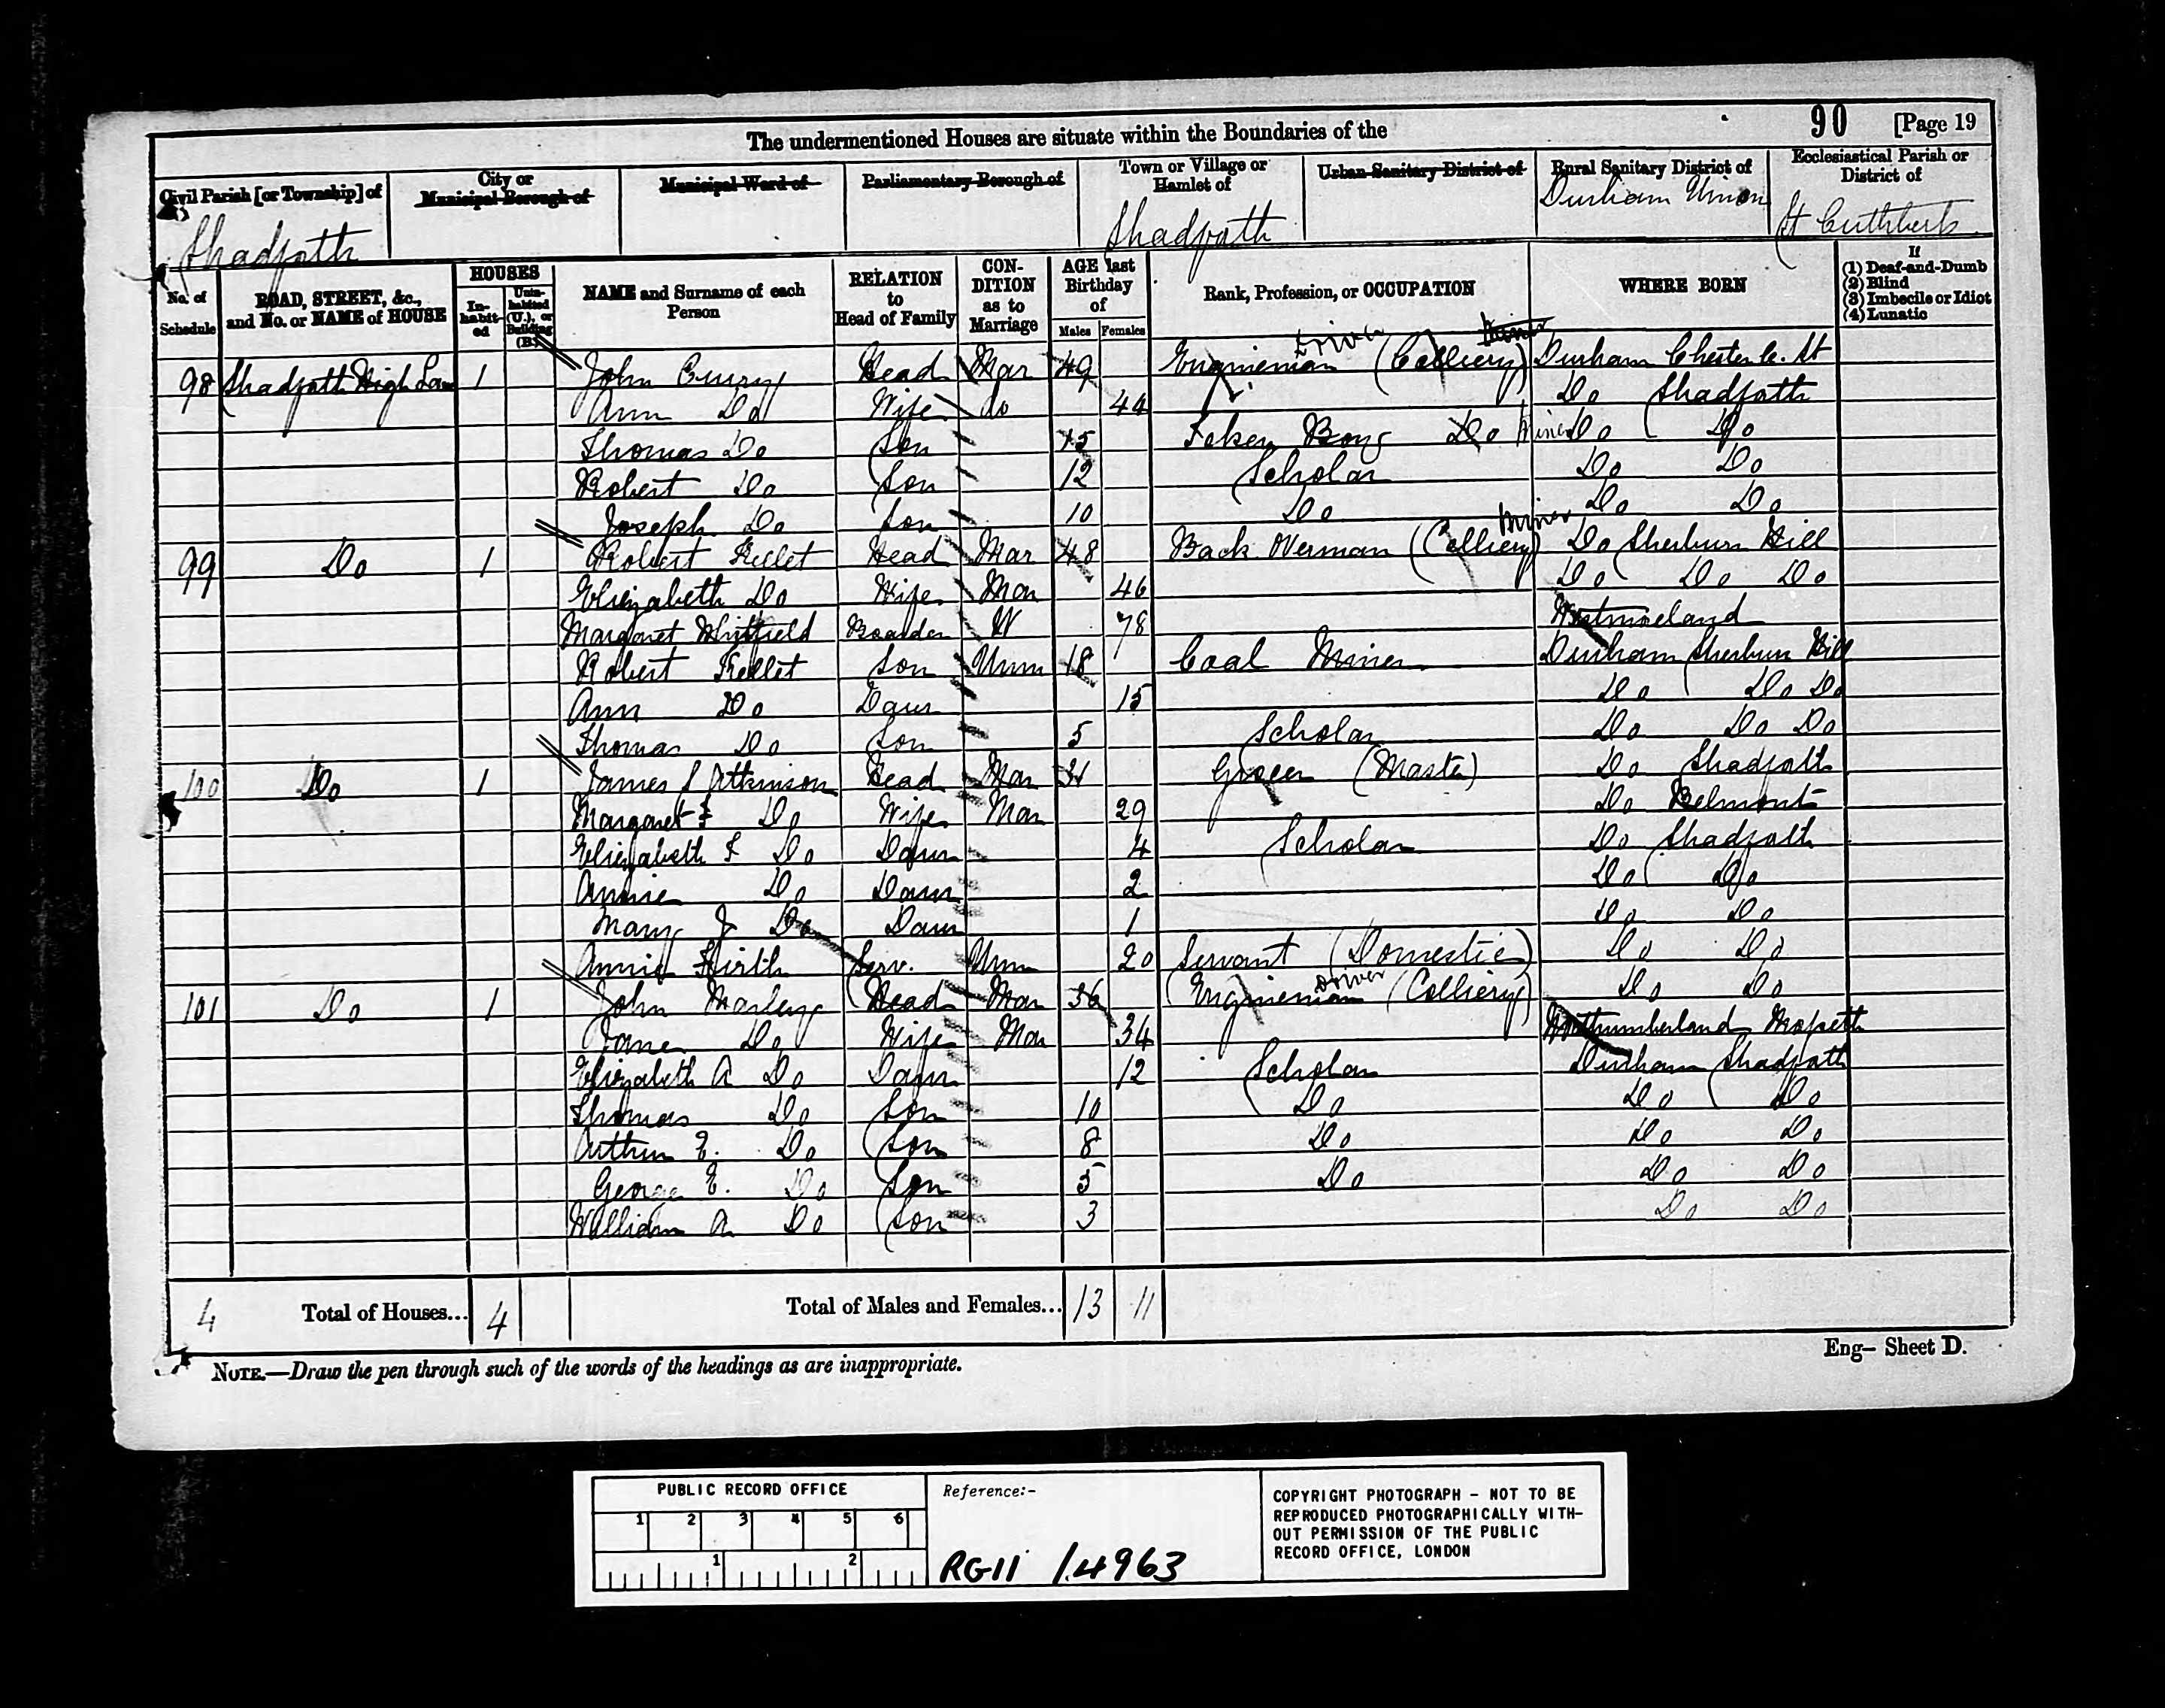 90 [Page 19
The undermentioned Houses are situate within the Boundaries of the
Civil Parish [or Township] of
City or Municipal Borough of
Municipal Ward of
Parliamentary Borough of
Town or Village or Hamlet of
Urban Sanitary District of
Rural Sanitary District of
Ecclesiastical Parish or District of
Shadforth
Shadforth
Durham Union
St Cuthberts
No. of Schedule
ROAD, STREET, &c., and No. or NAME of HOUSE
HOUSES
In-habit-ed
Unin-habited (U.), or Building (B.)
NAME and Surname of each Person
RELATION to Head of Family
CON-DITION as to Marriage
AGE last Birthday of
Males Females
Rank, Profession, or OCCUPATION
WHERE BORN
If
(1) Deaf-and-Dumb
(2) Blind
(3) Imbecile or Idiot
(4) Lunatic
98 Shadforth High Lane 1 John Curry Head Mar 49 Engineman Driver (Colliery) Durham Chester le St
Ann Do Wife do 44 Do Shadforth
Thomas Do Son 15 Token Boy Do Miner Do Do
Robert Do Son 12 Scholar Do Do
Joseph Do Son 10 Do Do Do
99 Do 1 Robert Kellet Head Mar 48 Back Overman (Colliery) Miner Do Sherburn Hill
Elizabeth Do Wife Mar 46 Do Do Do
Margaret Whitfield Boarder W 78 Westmoreland
Robert Kellet Son Unm 18 Coal Miner Durham Sherburn Hill
Ann Do Daur 15 Do Do Do
Thomas Do Son 5 Scholar Do Do Do
100 Do 1 James Atkinson Head Mar 31 Grocer (Master) Do Shadforth
Margaret Do Wife Mar 29 Do Belmont
Elizabeth Do Daur 4 Scholar Do Shadforth
Annie Do Daur 2 Do Do
Mary J Do Daur 1 Do Do
Annie Firth Serv. Unm 20 Servant (Domestic) Do Do
101 Do 1 John Marley Head Mar 36 Engineman Driver (Colliery) Do Do
Jane Do Wife Mar 34 Northumberland Mopeth
Elizabeth A Do Daur 12 Scholar Durham Shadforth
Thomas Do Son 10 Do Do Do
Arthur E. Do Son 8 Do Do Do
George E. Do Son 5 Do Do Do
William A Do Son 3 Do Do
4 Total of Houses... 4 Total of Males and Females... 13 11
NOTE.—Draw the pen through such of the words of the headings as are inappropriate.
Eng- Sheet D.
PUBLIC RECORD OFFICE
1 2 3 4 5 6
1 2
Reference:-
RG11 / 4963
COPYRIGHT PHOTOGRAPH - NOT TO BE
REPRODUCED PHOTOGRAPHICALLY WITH-
OUT PERMISSION OF THE PUBLIC
RECORD OFFICE, LONDON